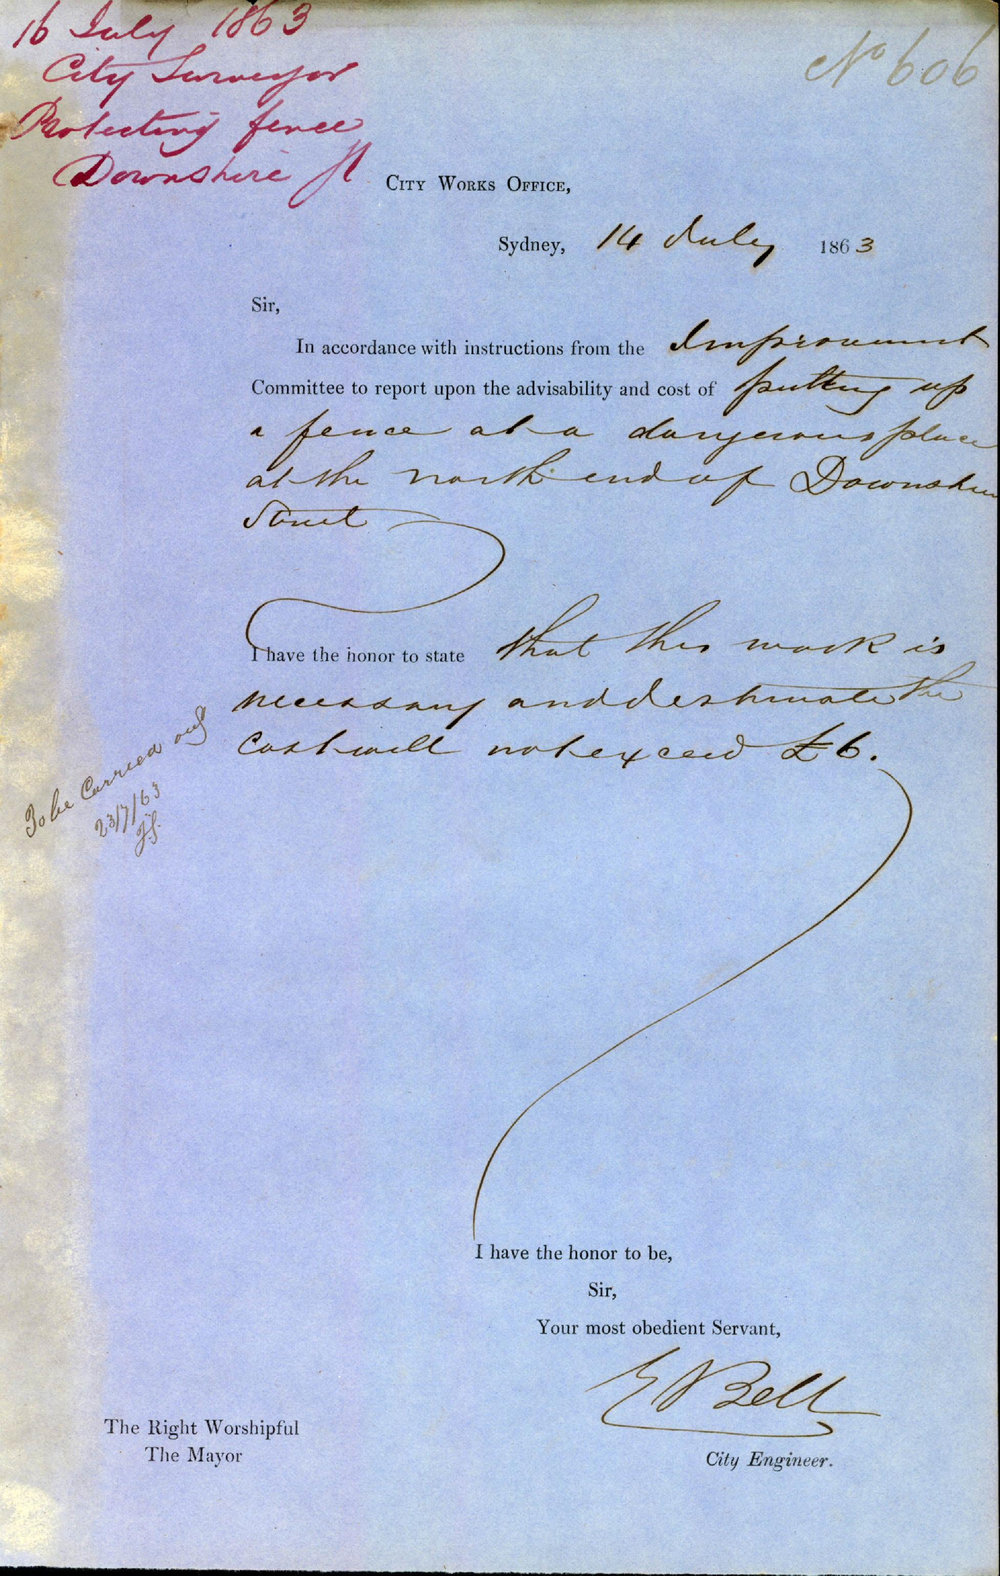 16 July 1863
City Surveyor
Protecting fence
Downshire St
No 606
City Works Office,
Sydney, 14 July 1863
Sir,
In accordance with instructions from the Improvement
Committee to report upon the advisability and cost of putting up
a fence at a dangerous place
at the north end of Downshire
Street
I have the honor to state that this work is
necessary and I estimate the
cost will not exceed £6.
To be Carried out
23/7/63
I have the honor to be,
Sir,
Your most obedient Servant,
E Bell
The Right Worshipful
The Mayor
City Engineer.